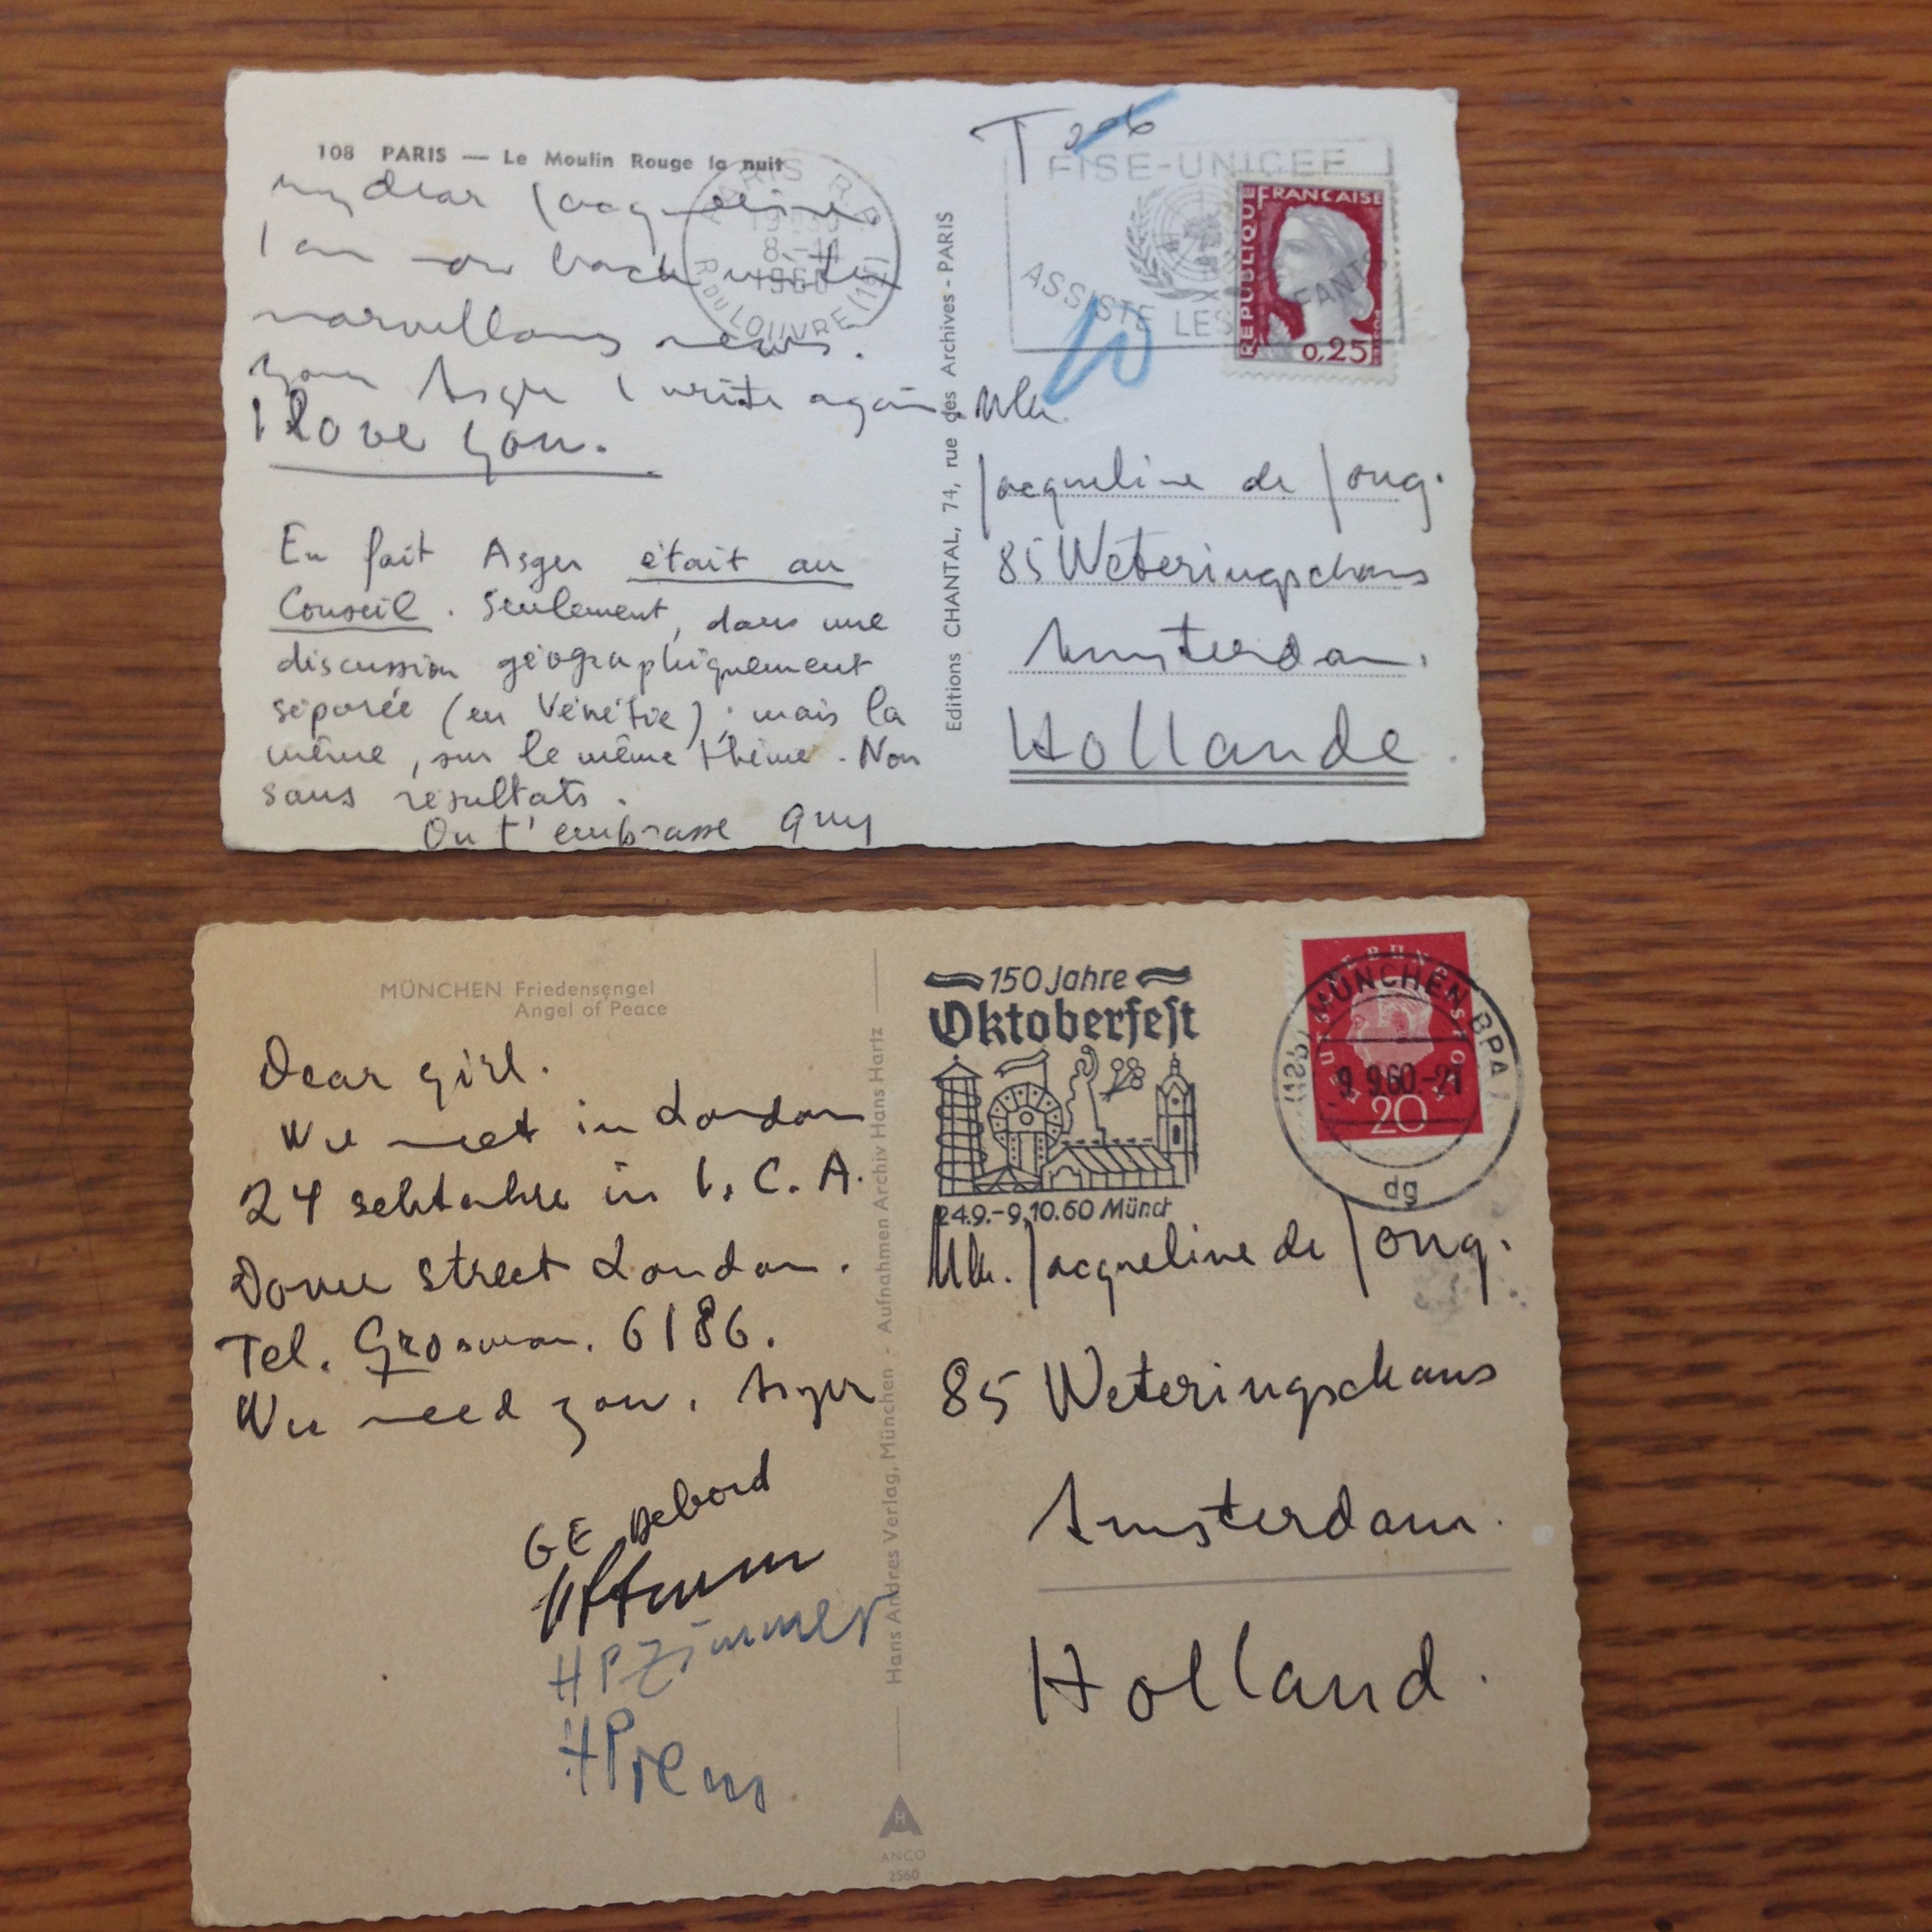 108 PARIS — Le Moulin Rouge la nuit
my dear Jacqueline
I am now back with
marvellous news.
your Asger I write again.
I love you.
En fait Asger était au
Conseil. Seulement, dans une
discussion géographiquement
séparée (en Vénétie); mais la
même, sur le même thème. Non
sans résultats.
On t'embrasse Guy
PARIS R.P.
8-11
1960
R. DU LOUVRE (1er)
Editions CHANTAL, 74, rue des Archives - PARIS
T
FISE-UNICEF
ASSISTE LES ENFANTS
REPUBLIQUE FRANCAISE
POSTES
0,25
10
Mlle.
Jacqueline de Jong.
85 Weteringschans
Amsterdam.
Hollande.
MÜNCHEN Friedensengel
Angel of Peace
Dear girl.
We meet in London
24 sebtember in I.C.A.
Dover street London.
Tel. Grosvenor. 6186.
We need you. Asger
GE Debord
HPZimmer
HPrem
Hans Andres Verlag, München - Aufnahmen Archiv Hans Hartz
H
ANCO
2560
150 Jahre
Oktoberfest
24.9.-9.10.60 Münch
DEUTSCHE BUNDESPOST
20
MÜNCHEN BPA 1
9.9.60.-21
dg
Mlle. Jacqueline de Jong.
85 Weteringschans
Amsterdam.
Holland.